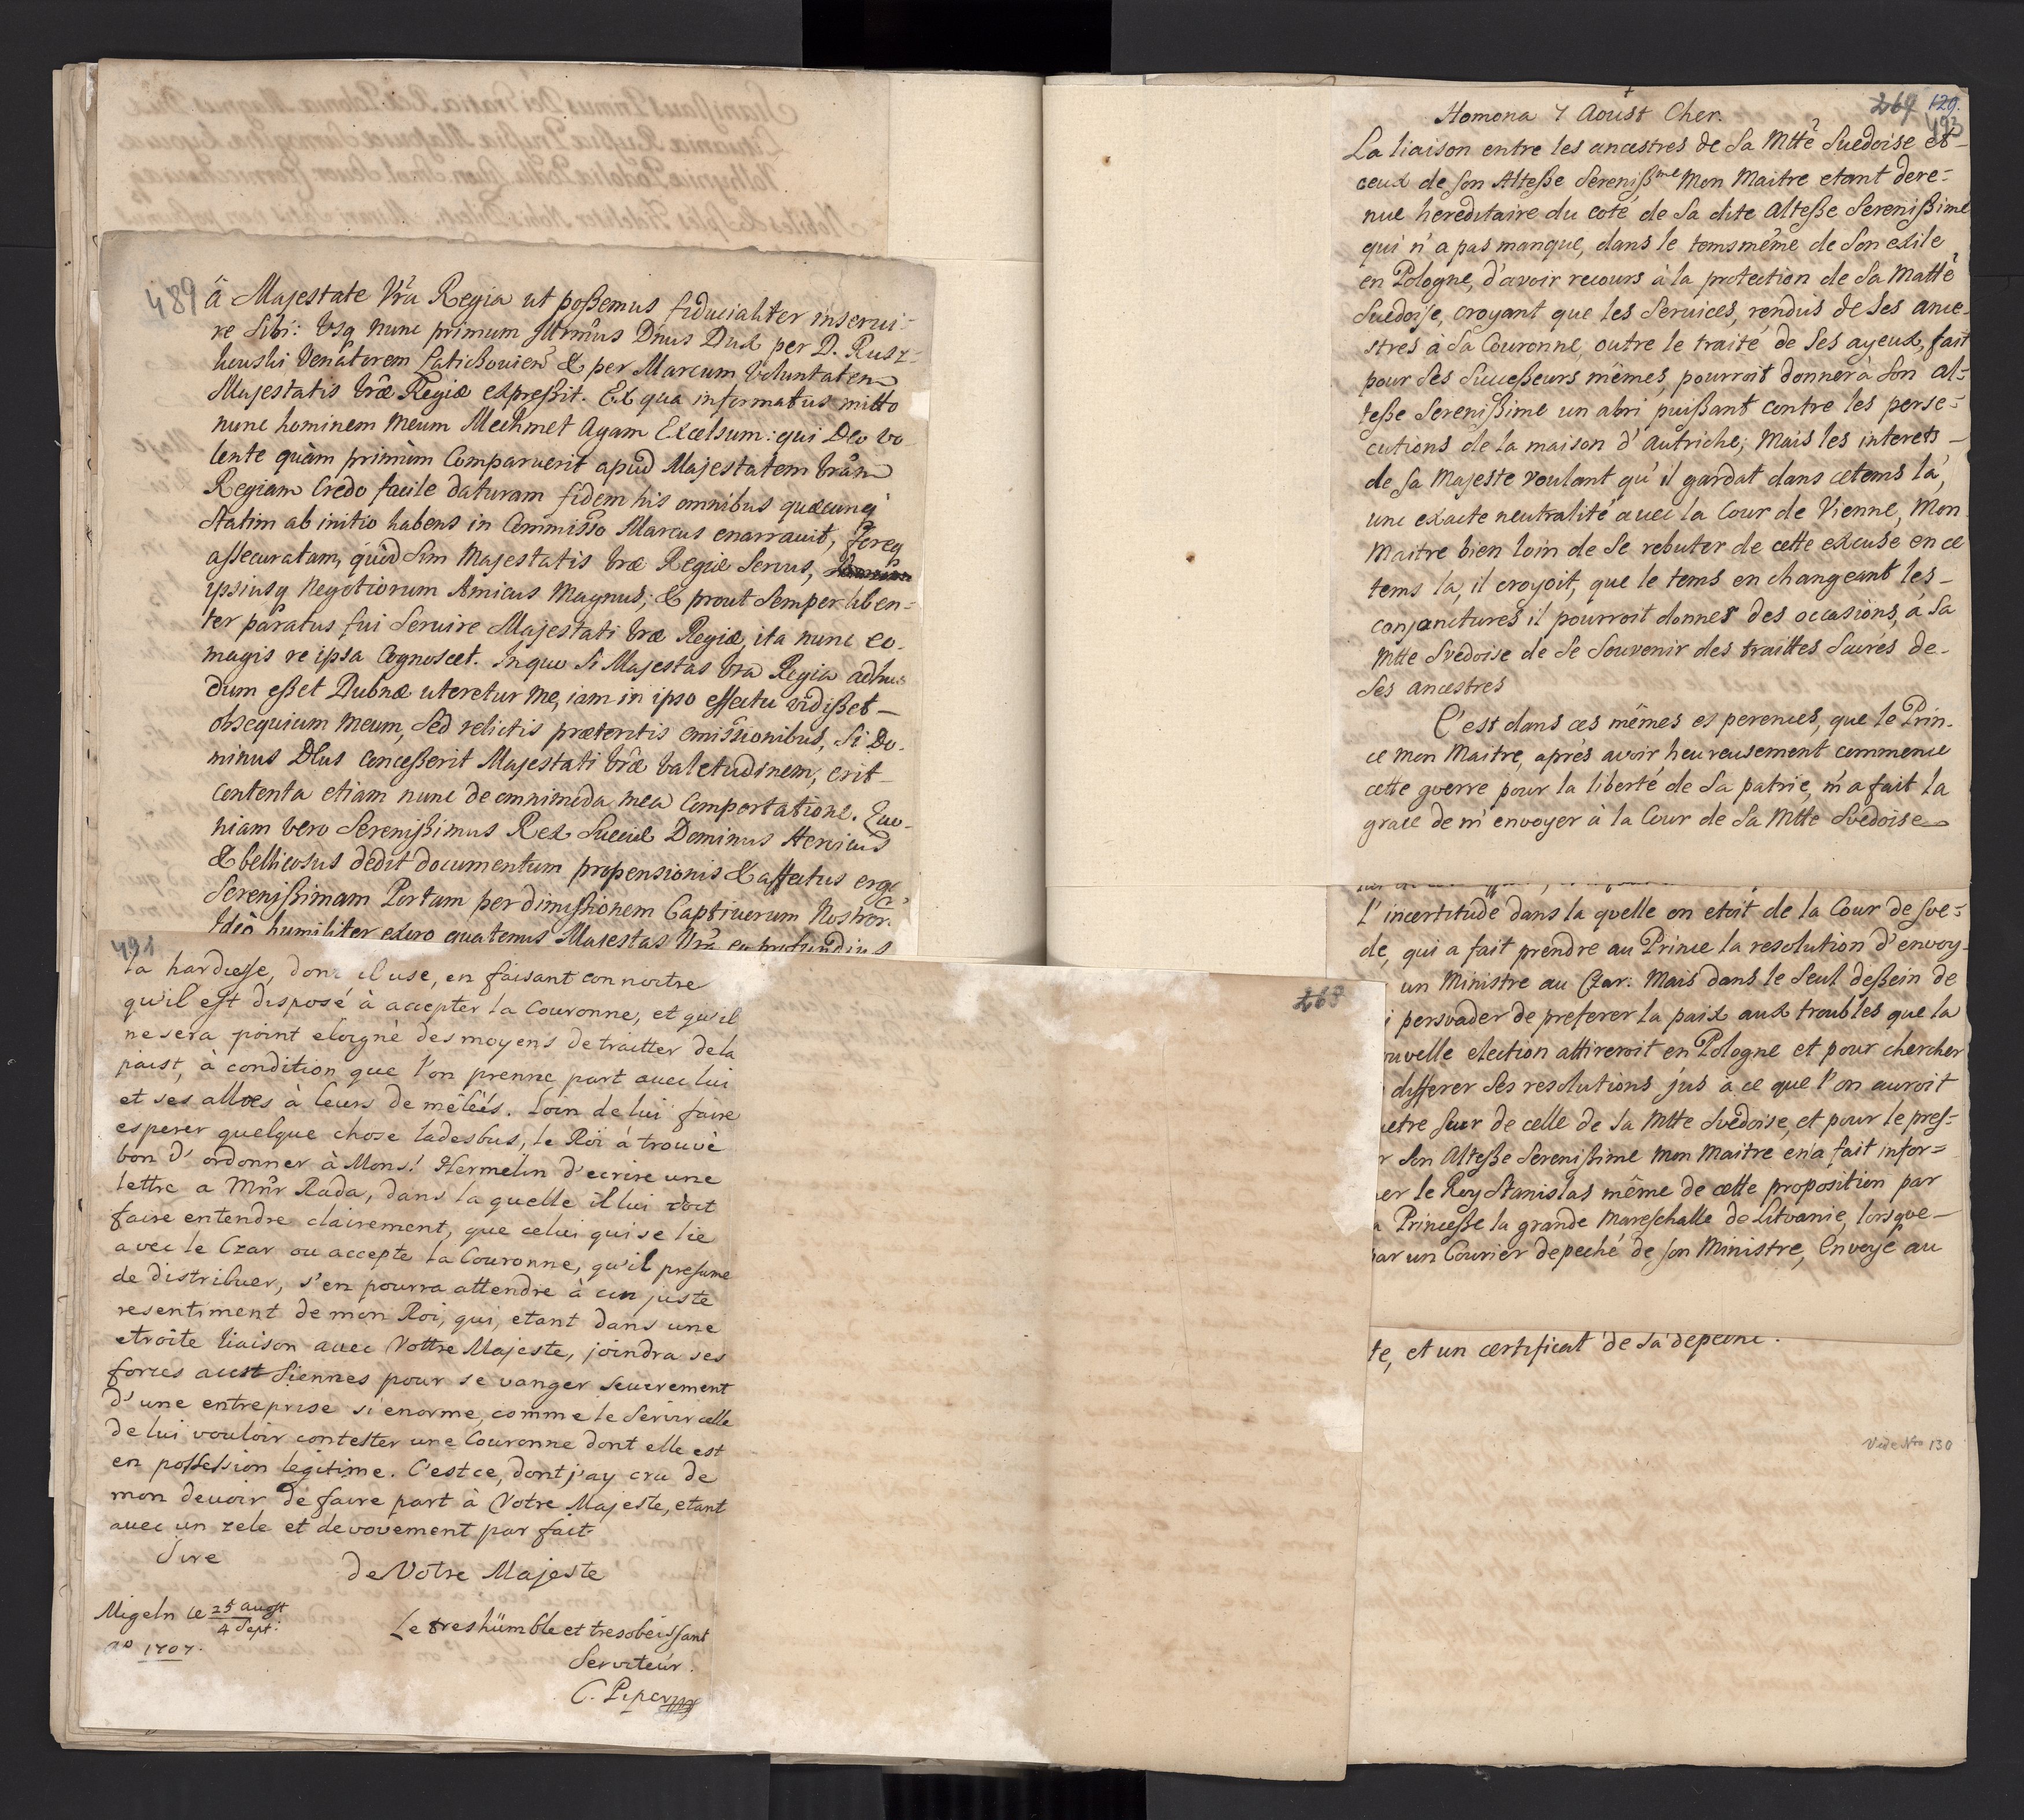 489
â Majestate Vrã Regia ut poßemus fiducialiter inserui-
re Sibi: Usq nunc primum Illrmus Dnus Dux per D. Rusz-
kouski Venatorem Laticzouien & per Marcum Voluntatem
Majestatis Vræ Regiæ expreßit. Ex qua informatus mitto
nunc hominem meum Mechmet Agam Excelsum: qui Deo vo-
lente quàm primùm Comparuerit apud Majestatem Vram
Regiam Credo facile daturam fidem his omnibus quæcunq
statim ab initio habens in Commisso Marcus enarrauit, foreq
assecuratam, quod sim Majestatis Vræ Regiæ Servus,
ipsiusq Negotiorum Amicus Magnus; & prout Semper liben-
ter paratus fui Seruire Majestati Vræ Regiæ, ita nunc eo-
magis re ipsa Cognoscet. In quo Si Majestas Vra Regia adhuc
dum eßet Dubnæ uteretur me, iam in ipso effectu vidißet
obsequium meum, Sed relictis præteritis omissionibus, Si Do-
minus Deus Conceßerit Majestati Vræ Valetudinem, erit
Contenta etiam nunc de omnimoda mea Comportatione. Quo-
niam vero Serenißimus Rex Sueciæ Dominus Heroicus
& bellicosus dedit documentum propensionis & affectus erga
Serenißimam Portam per dimißionem Captiuorum Nostror.
Ideò humiliter exoro quatenus Majestas Vra
491
la hardiesse, dont il use, en faisant connoitre
qu'il est disposé à accepter la Couronne, et qu'il
ne sera point eloigné des moyens de traitter de la
paist, à condition que l'on prenne part avec lui
et ses alloes à leurs demêléés. Loin de lui faire
esperer quelque chose ladesbus, le Roi à trouvè
bon d'ordonner à Mons! Hermelin d'ecrire une
lettre a Mnr Rada, dans la quelle il lui doit
faire entendre clairement, que celui qui se lie
avec le Czar ou accepte la Couronne, qu'il presume
de distribuer, s'en pourra attendre à un juste
resentiment de mon Roi, qui, etant dans une
etroite liaison avec Vottre Majeste, joindra ses
forces aust Siennes pour se vanger seuerement
d'une entreprise si enorme, comme le Servir celle
de lui vouloir contester une Couronne dont elle est
en possession legitime. C'est ce, dont j'ay cru de
mon devoir de faire part à Votre Majeste, etant
avec un zele et devovement par fait
Sire
de Votre Majeste
Migeln le 25 augst
4 Sept:
ao 1707.
Le treshümble et tresobeissant
Serviteur.
C. Piper
268
269 129.
493
Homona 7 Aoust Cher.
La liaison entre les ancestres de Sa Mtte Suedoise et
ceux de Son Alteße Sereniß.me Mon Maitre etant deve-
nue hereditaire du coté de Sa dite Alteße Serenißime
qui n'a pas manque, dans le tems même de Son exile
en Pologne, d'avoir recours à la protection de Sa Matte
Suedoise, croyant que les Services, rendus de Ses ance-
stres à Sa Couronne, outre le traité de Ses ayeux, fait
pour Ses Succeßeurs mêmes, pourroit donner à Son Al-
teße Serenißime un abri puißant contre les perse-
cutions de la maison d'Autriche; Mais les interets
de Sa Majeste voulant qu'il gardat dans ce tems là,
une exacte neutralité avec la Cour de Vienne, Mon
Maitre bien loin de Se rebuter de cette excuse en ce
tems la, il croyoit, que le tems en changeant les
conjonctures il pourroit donner des occasions, á Sa
Mtte Svedoise de Se Souvenir des traittes Sacrés de
Ses Ancestres
C'est dans ces mêmes esperences, que le Prin-
ce Mon Maitre, aprés avoir heureusement commence
cette guerre pour la liberté de Sa patrie, m'a fait la
grace de m'envoyer à la Cour de Sa Mtte Svedoise
l'incertitude dans la quelle on etoit de la Cour de Sve-
de, qui a fait prendre au Prince la resolution d'envoy-
un Ministre au Czar. Mais dans le Seul deßein de
persvader de preferer la paix aux troubles que la
ouvelle election attireroit en Pologne et pour chercher
differer Ses resolutions jus à ce que l'on auroit
etre Sur de celle de Sa Mtte Svedoise, et pour le pres-
r Son Alteße Serenißime Mon Maitre en a fait infor-
er le Roy Stanislas même de cette proposition par
a Princeße la grande Mareschalle de Litvanie, lorsque
par un Courier depeché de Son Ministre, Envoyé au
te, et un certificat de Sa depeche.
Vide Nro 130